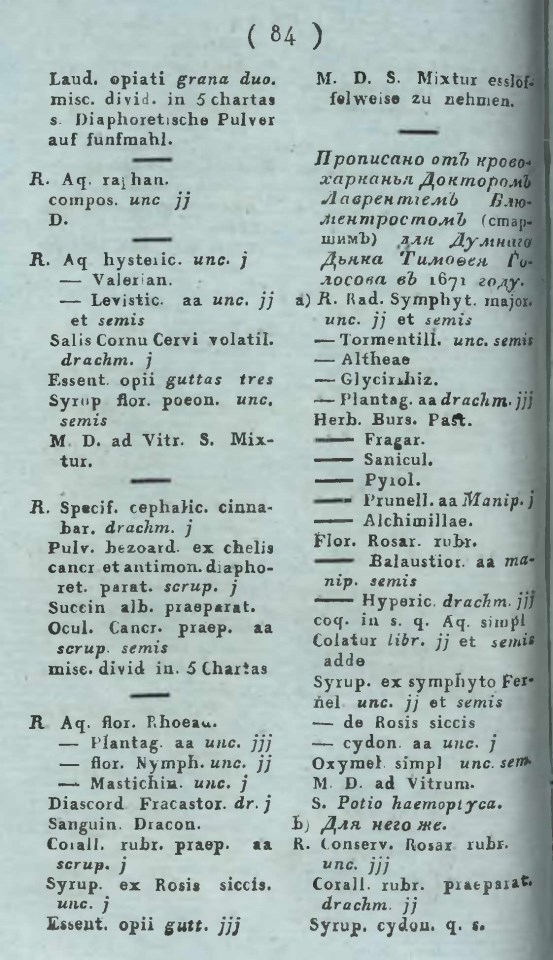 ( 84 )
Laud. opiati grana duo.
misc. divid. in 5 chartas
s. Diaphoretische Pulver
auf funfmahl.
R. Aq. raphan.
compos. unc jj
D.
R. Aq hysteric. unc. j
— Valerian.
— Levistic. aa unc. jj
et semis
Salis Cornu Cervi volatil.
drachm. j
Essent. opii guttas tres
Syrup flor. poeon. unc.
semis
M. D. ad Vitr. S. Mix-
tur.
R. Specif. cephalic. cinna-
bar. drachm. j
Pulv. bezoard. ex chelis
cancr et antimon. diapho-
ret. parat. scrup. j
Succin alb. praeparat.
Ocul. Cancr. praep. aa
scrup. semis
misc. divid in. 5 Chartas
R Aq. flor. Rhoead.
— Plantag. aa unc. jjj
— flor. Nymph. unc. jj
— Mastichin. unc. j
Diascord Fracastor. dr. j
Sanguin. Dracon.
Corall. rubr. praep. aa
scrup. j
Syrup. ex Rosis siccis.
unc. j
Essent. opii gutt. jjj
M. D. S. Mixtur esslöf-
felweise zu nehmen.
Прописано отъ крово-
харканья Докторомъ
Лаврентіемъ Блю-
ментростомъ (стар-
шимъ) для Думнаго
Дьяка Тимоѳея Го-
лосова въ 1671 году.
a) R. Rad. Symphyt. major.
unc. jj et semis
— Tormentill. unc. semis
— Altheae
— Glycirrhiz.
— Plantag. aa drachm. jjj
Herb. Burs. Past.
— Fragar.
— Sanicul.
— Pyrol.
— Prunell. aa Manip. j
— Alchimillae.
Flor. Rosar. rubr.
— Balaustior. aa ma-
nip. semis
— Hyperic. drachm. jjj
coq. in s. q. Aq. simpl
Colatur libr. jj et semis
adde
Syrup. ex symphyto Fer-
nel unc. jj et semis
— de Rosis siccis
— cydon. aa unc. j
Oxymel. simpl unc. sem.
M. D. ad Vitrum.
S. Potio haemoptyca.
b) Для него же.
R. Conserv. Rosar rubr.
unc. jjj
Corall. rubr. praeparat.
drachm. jj
Syrup. cydon. q. s.